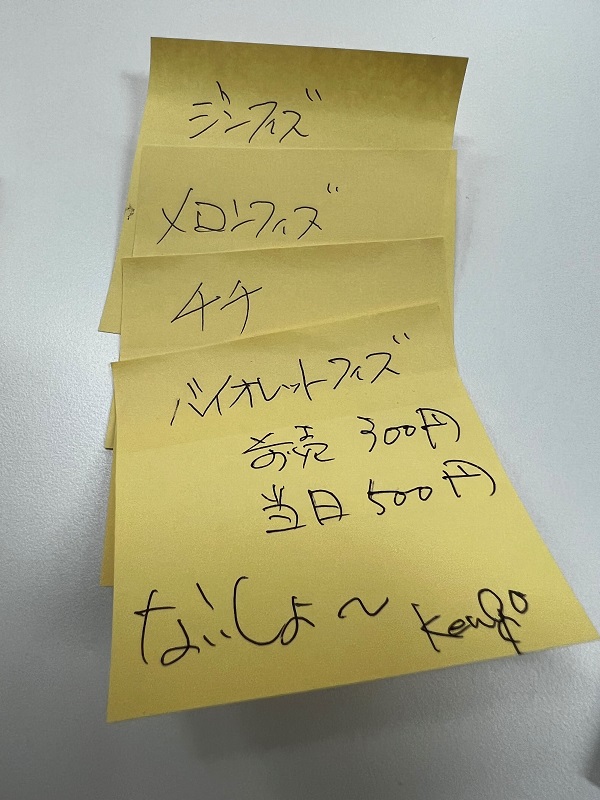 ジンフィズ
メロンフィズ
チチ
バイオレットフィズ
前売 300円
当日 500円
ないしょ〜